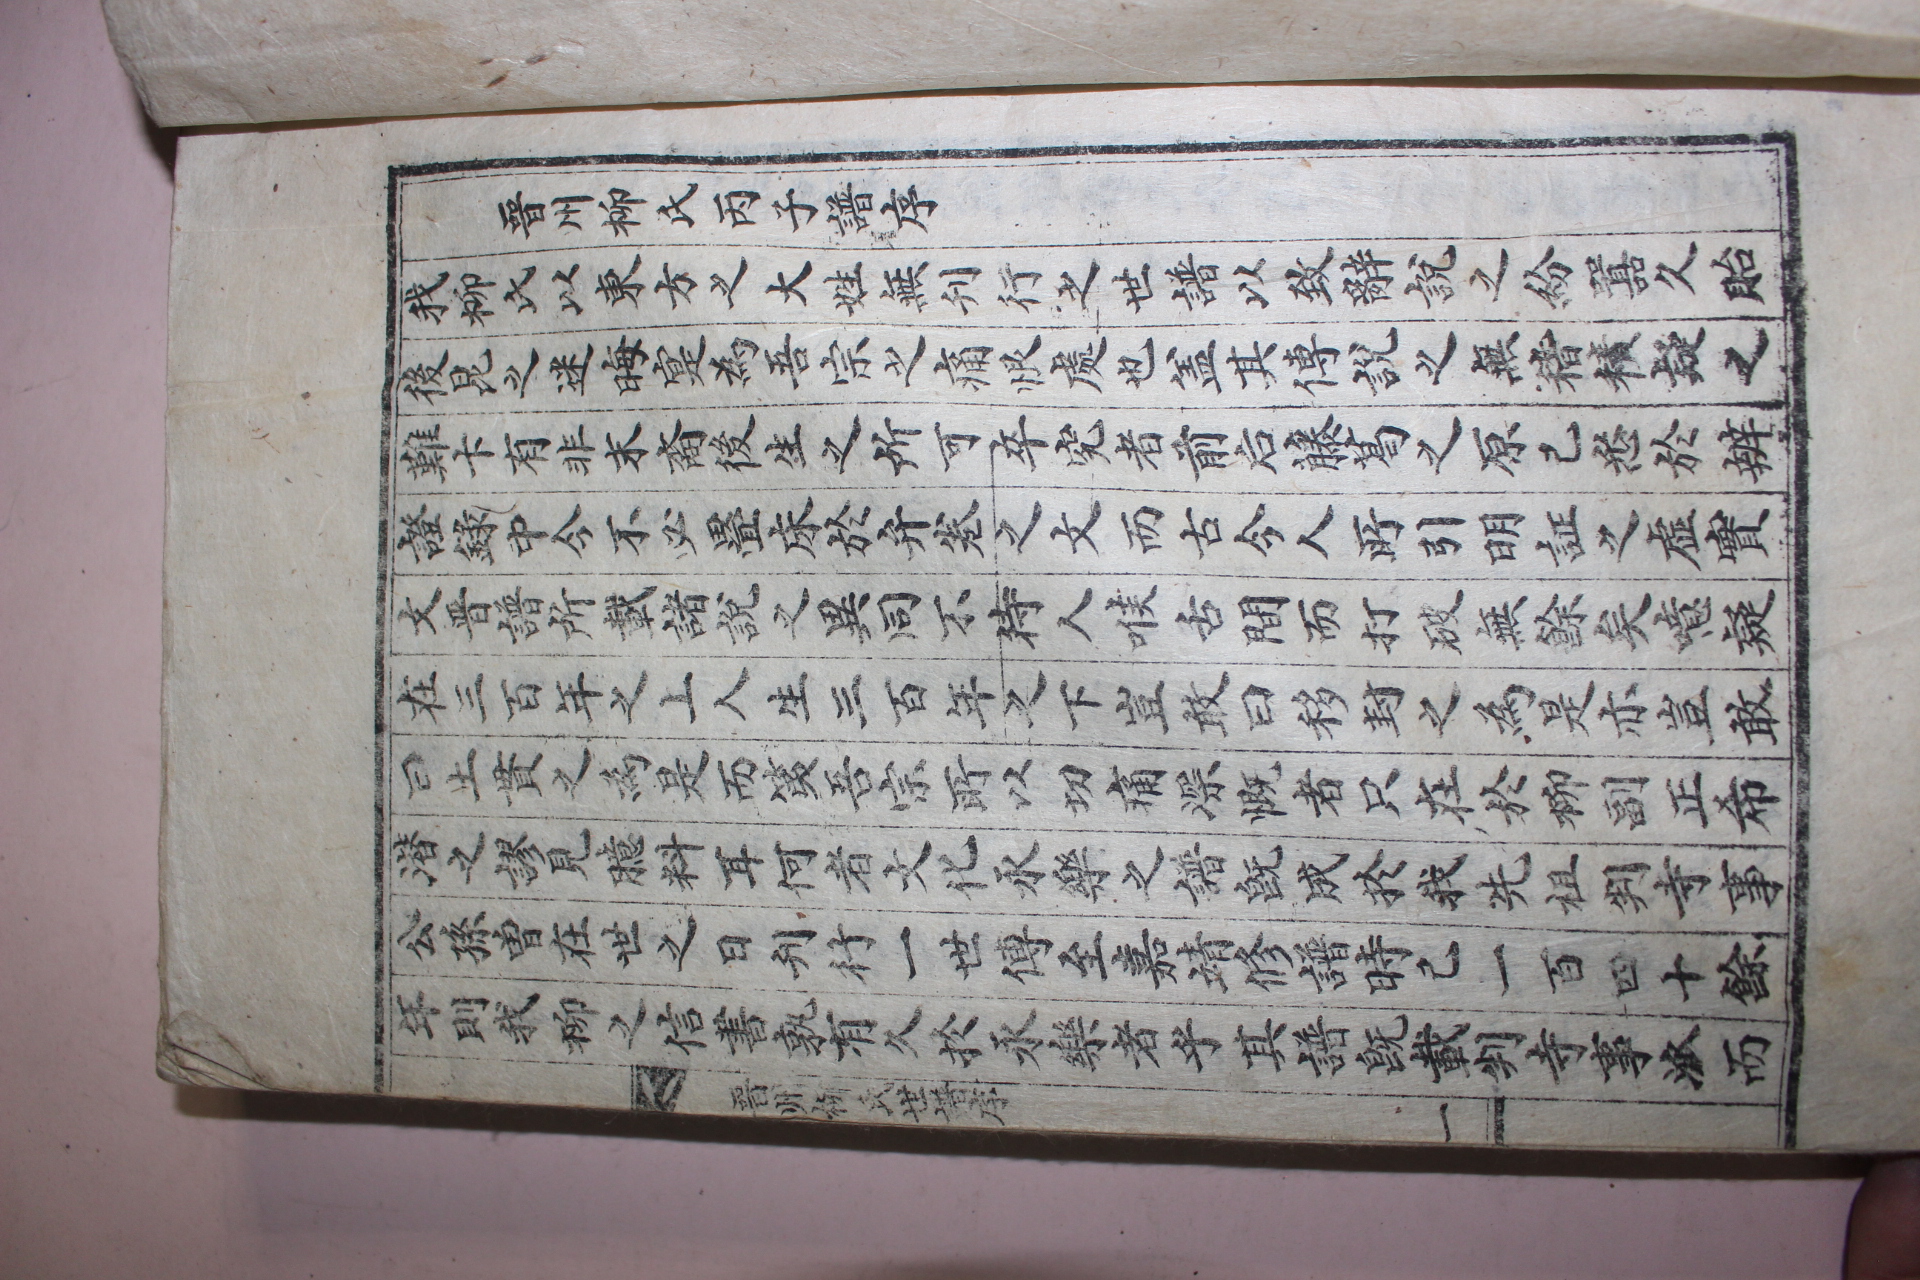 晋州柳氏丙子譜序
我柳氏以東方之大姓無刊行之世譜以致辭說之紛囂久貽
後昆之迷晦寔爲吾宗之痛恨處也盖其傳說之無稽核疑之
難卞有非末裔後生之所可卒究者前后藤葛之原已悉於辨
證錄中今不必疊床於弁卷之文而古今人所引明証之虛實
文晋譜所載諸說之異同不待人喙舌間而打破無餘矣噫疑
在三百年之上人生三百年之下豈敢曰移封之爲是亦豈敢
曰土貫之爲是而寔吾宗所以切痛深慨者只在於柳副正希
潜之謬見臆料耳何者文化永樂之譜旣成於我先祖判寺事
公孫曾在世之日刊行一世傳至嘉靖修譜時已一百四十餘
年則我柳之信書孰有久於永樂者乎其譜旣載判寺事派而
晋州柳氏世譜序
一